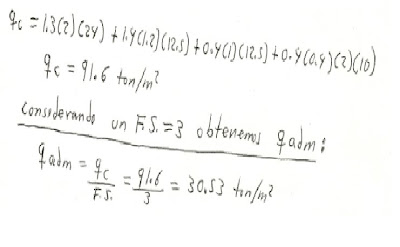 qc = 1.3(2)(24) + 1.4(1.2)(12.5) + 0.4(1)(12.5) + 0.4(0.4)(2)(10)
qc = 91.6 ton/m²
considerando un F.S. = 3 obtenemos qadm:
qadm = qc/F.S. = 91.6/3 = 30.53 ton/m²